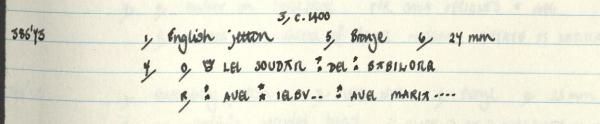 3, c.1400
385'73 1, English jetton 5, Bronze 6, 24 mm
4, O, LEL SOUDAN : DEL : BABILONA
R, : AUEL : IELBV.. : AUEL MARIA ....